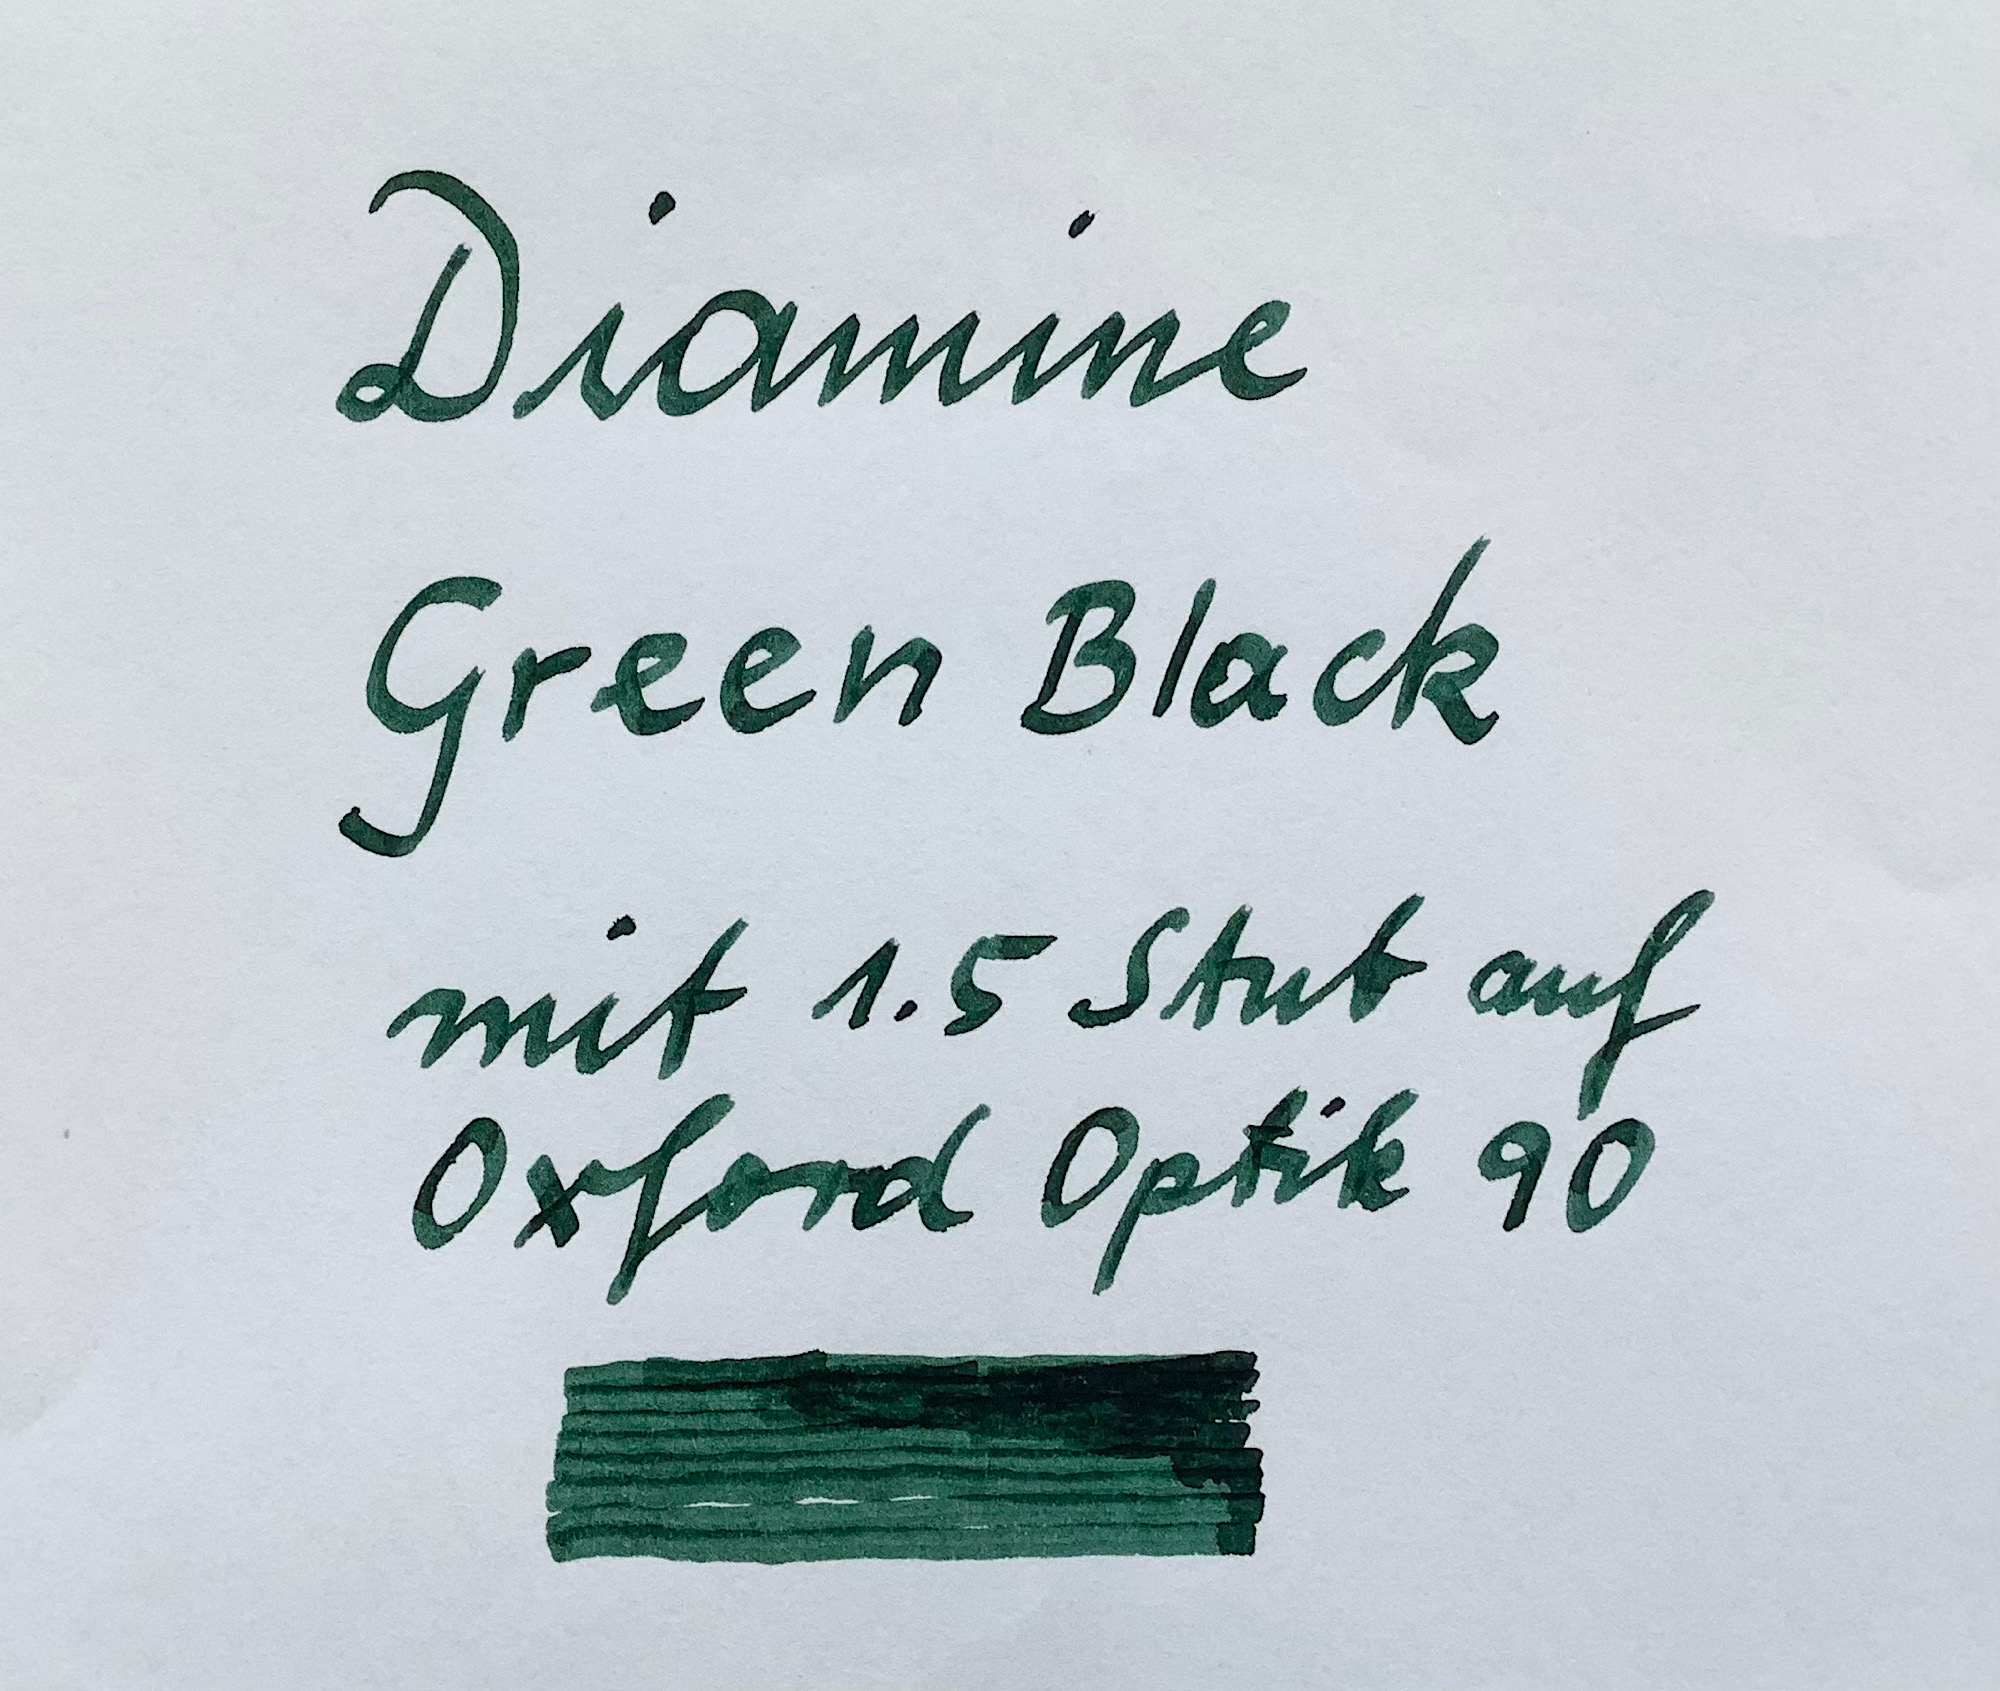 Diamine
Green Black
mit 1.5 Stub auf
Oxford Optik 90